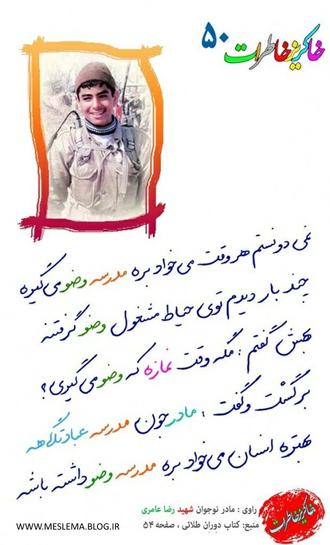 خاکریز خاطرات ۵۰
نمی دونستم هر وقت می خواد بره مدرسه وضو می گیره
چند بار دیدم توی حیاط مشغول وضو گرفتنه
بهش گفتم : مگه وقت نمازه که وضو می گیری ؟
برگشت و گفت : مادر جون مدرسه عبادتگاهه
بهتره انسان می خواد بره مدرسه وضو داشته باشه
راوی : مادر نوجوان شهید رضا عامری
منبع: کتاب دوران طلائی ، صفحه ۵۴
خاکریز خاطرات
WWW.MESLEMA.BLOG.IR